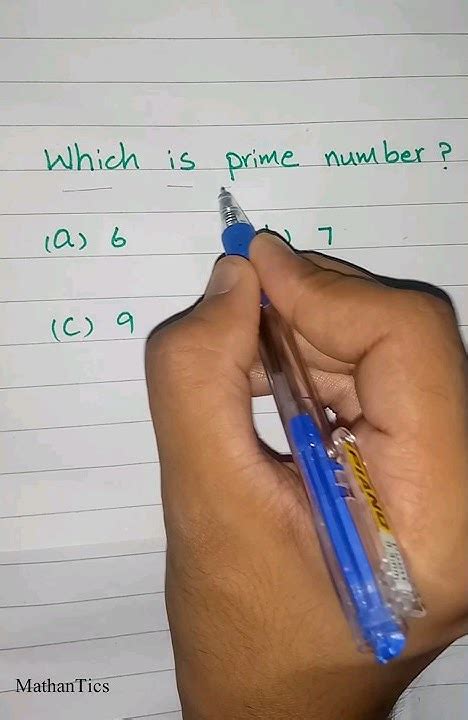 Which is prime number?
(a) 6 ) 7
(c) 9
PIANO
MathanTics